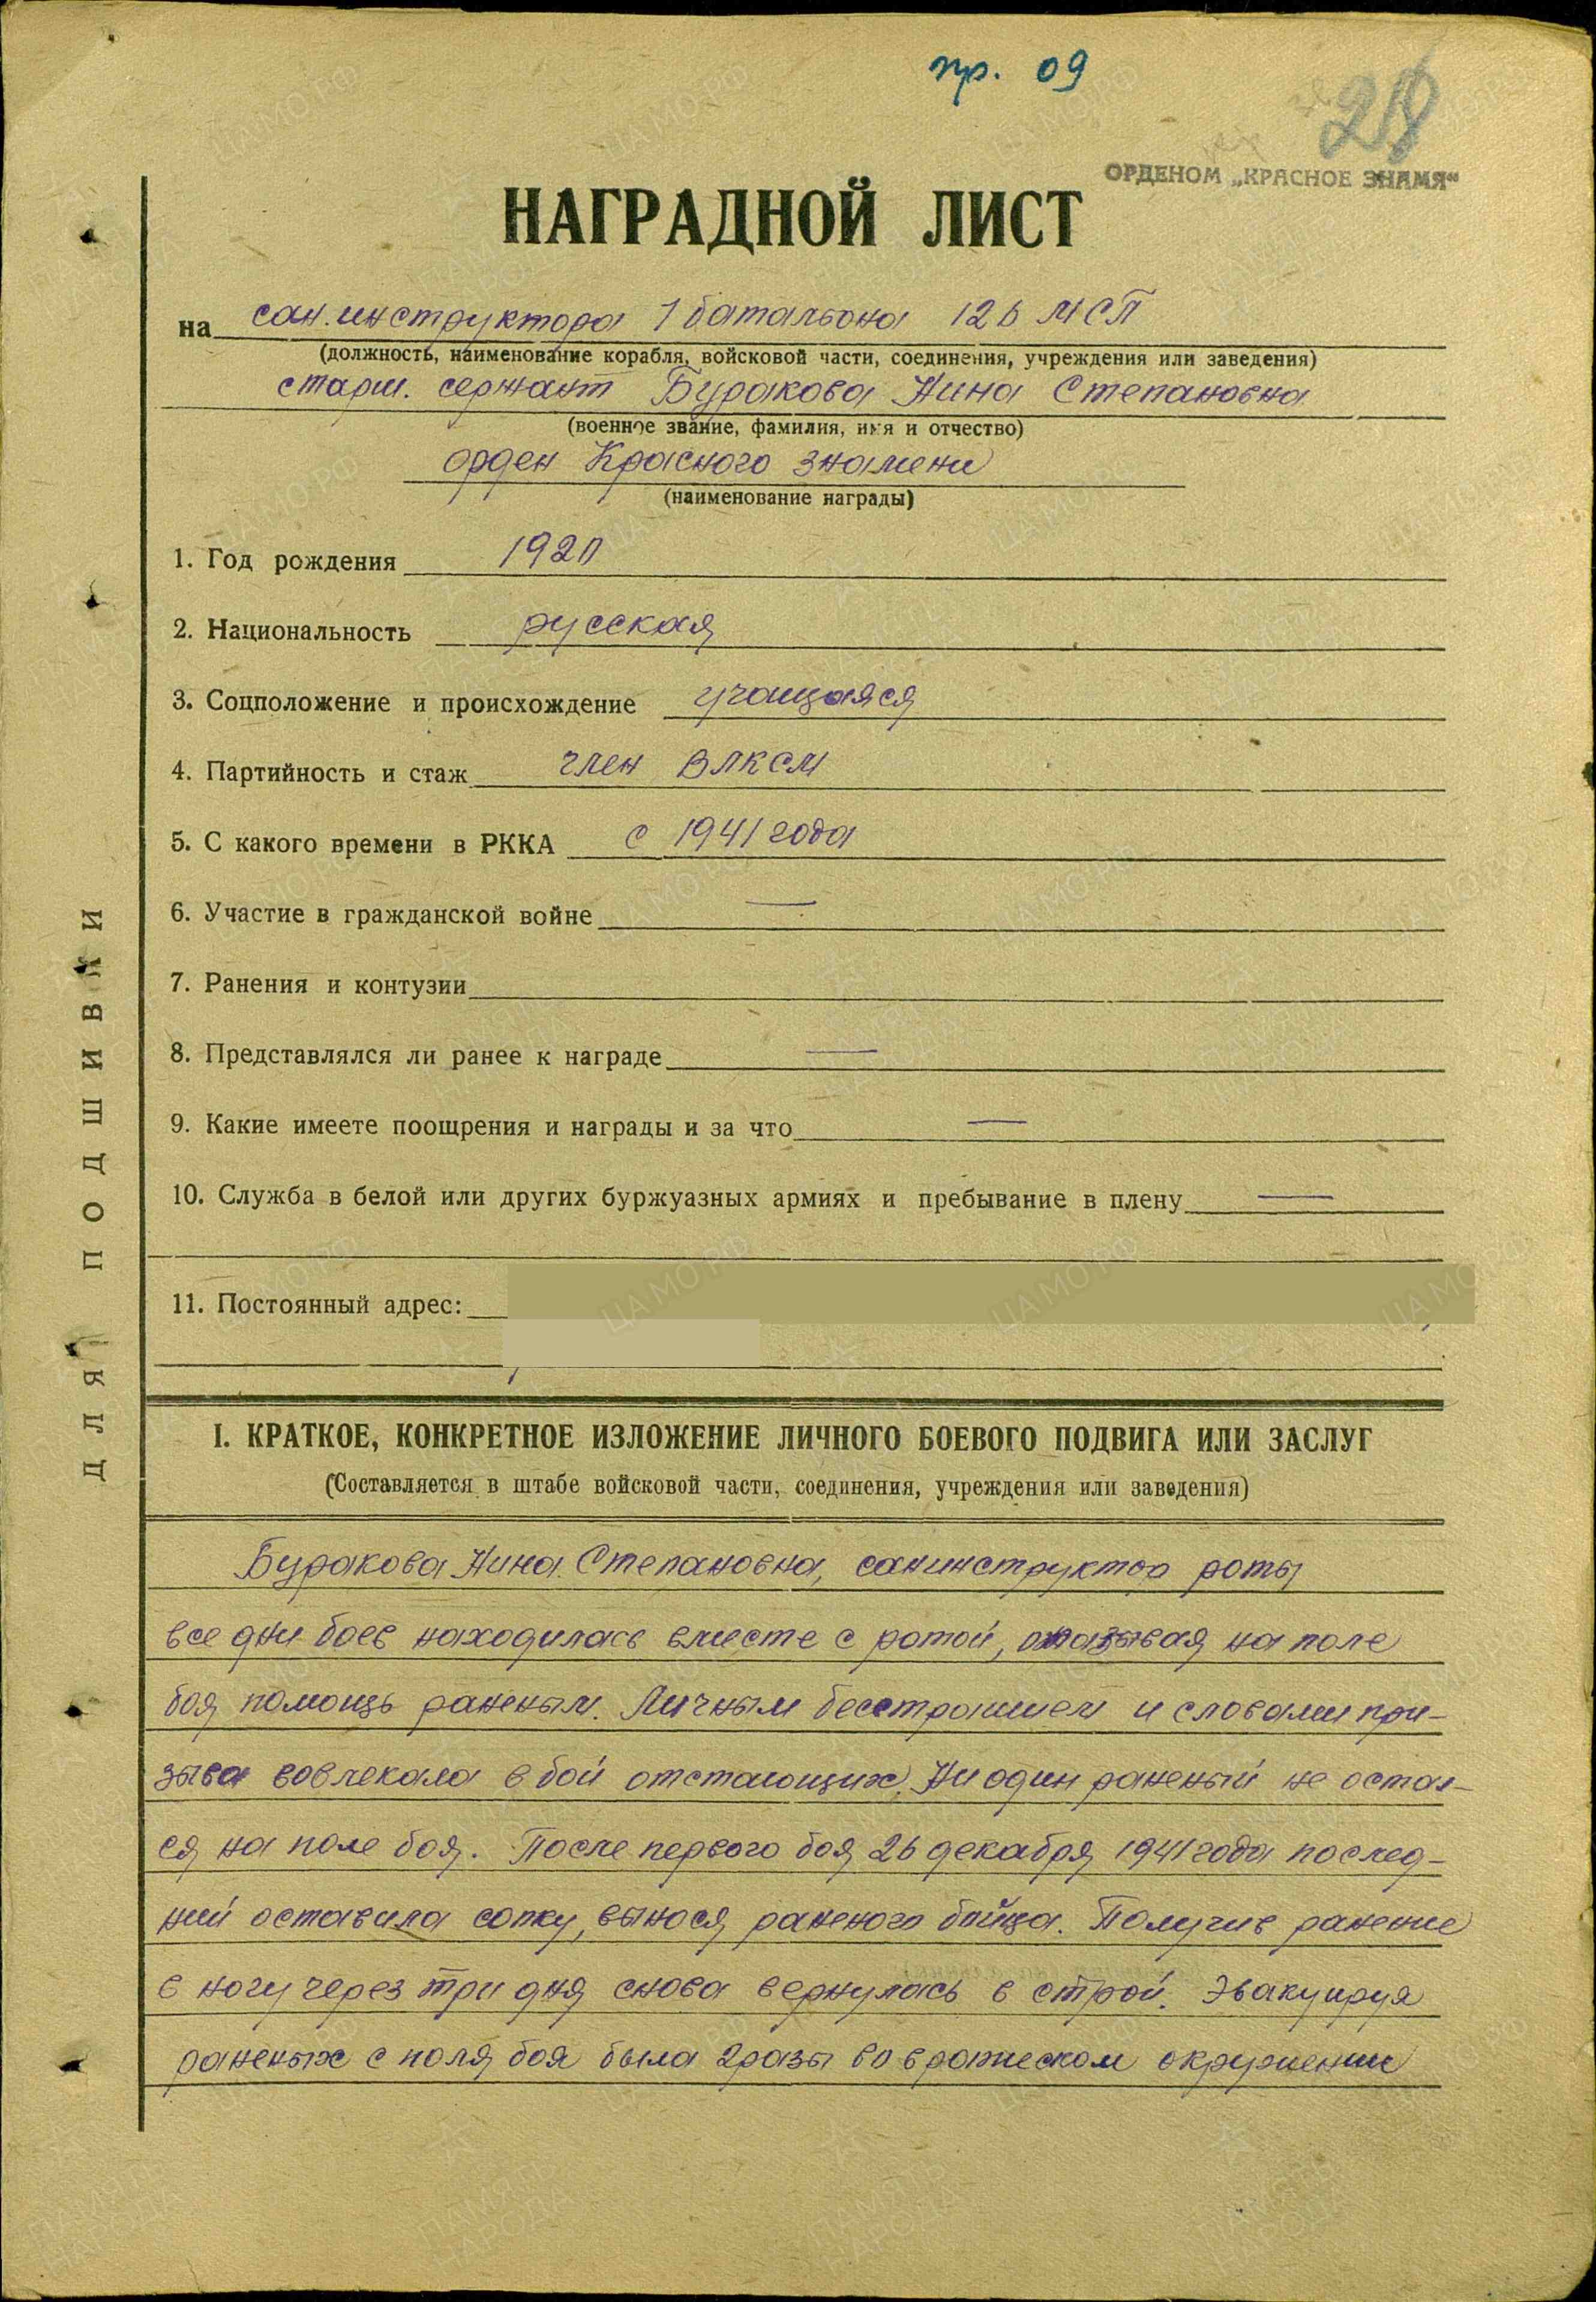 пр. 09
218
ОРДЕНОМ „КРАСНОЕ ЗНАМЯ“
НАГРАДНОЙ ЛИСТ
на сан. инструктора 1 батальона 126 МСП
(должность, наименование корабля, войсковой части, соединения, учреждения или заведения)
старш. сержант Буракова Нина Степановна
(военное звание, фамилия, имя и отчество)
орден Красного знамени
(наименование награды)
1. Год рождения 1920
2. Национальность русская
3. Соцположение и происхождение учащаяся
4. Партийность и стаж член ВЛКСМ
5. С какого времени в РККА с 1941 года
6. Участие в гражданской войне —
7. Ранения и контузии
8. Представлялся ли ранее к награде —
9. Какие имеете поощрения и награды и за что —
10. Служба в белой или других буржуазных армиях и пребывание в плену —
11. Постоянный адрес:
ДЛЯ ПОДШИВКИ
I. КРАТКОЕ, КОНКРЕТНОЕ ИЗЛОЖЕНИЕ ЛИЧНОГО БОЕВОГО ПОДВИГА ИЛИ ЗАСЛУГ
(Составляется в штабе войсковой части, соединения, учреждения или заведения)
Буракова Нина Степановна, санинструктор роты
все дни боев находилась вместе с ротой, оказывая на поле
боя помощь раненым. Личным бесстрашием и словами при-
зыва вовлекала в бой отстающих. Ни один раненый не остал-
ся на поле боя. После первого боя 26 декабря 1941 года послед-
ний оставила сопку, вынося раненого бойца. Получив ранение
в ногу через три дня снова вернулась в строй. Эвакуируя
раненых с поля боя была 2 разы во вражеском окружении